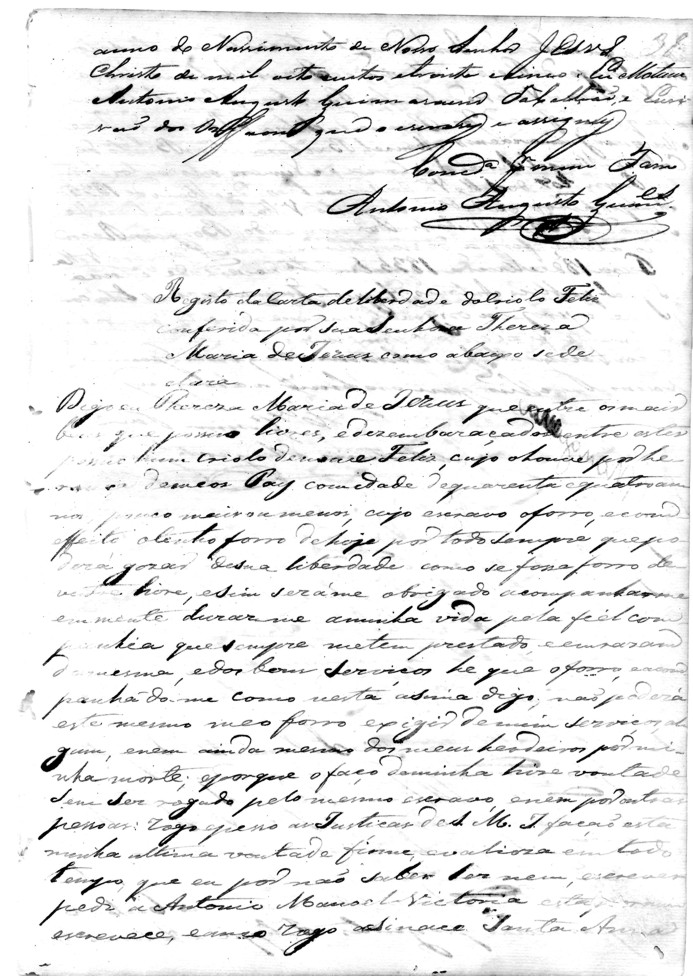 38
anno do Nascimento de Nosso Senhor JESVS
Christo de mil oito centos etrinta ecinco. Eu
Antonio Augusto Guimaraens Tabelliaõ, e Escri
vaõ dos Orfaons que o escrevy e assigney
Antonio Augusto Guim.es
Registo da Carta de liberdade do Criolo Feliz
conferida por sua Senhora Thereza
Maria de Jezus como abaxo se de
clara
Digo eu Thereza Maria de Jezus que entre os mais
bens que possuo livres, e dezembaraçados entre estes
possuo hum criolo de nome Feliz, cujo o houve por he
rança de meos Pay com idade de quarenta equatro an
nos pouco mais ou menos, cujo escravo o forro, e com
effeito o tenho forro de hoje por todo sempre que po
derá gozar desua liberdade como se fora forro de
ventre livre, e sim será me obrigado acompanharme
em mente durar me a minha vida pela fiél com
panhia que sempre me tem prestado, e em razaõ
da mesma, e dos bons serviços he que o forro, e acom
panhádo me como nesta asima digo, naõ poderá
este mesmo meo forro exigir de mim serviço al
gum, e nem ainda mesmo dos meus herdeiros por mi
nha morte; e porque o faço de minha livre vontade
sem ser rogado pelo mesmo escravo, e nem por outras
pessoas: rogo e peço as Justiças de S. M. I. façaõ esta
minha ultima vontade firme, e valioza em todo
tempo, que eu por naõ saber ler nem, escrever
pedi a Antonio Manoel Victoria esta por mim
escrevece, e a meo rogo asinace Santa Anna